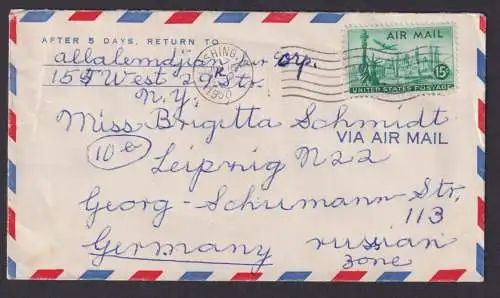 AFTER 5 DAYS, RETURN TO
Allalemdjian Fur Corp.
159 West 29 Str.
N.Y.
AIR MAIL
15¢
UNITED STATES POSTAGE
1950
Miss Brigitta Schmidt
VIA AIR MAIL
10 b
Leipzig N22
Georg-Schumann Str.
113
Germany russian
zone